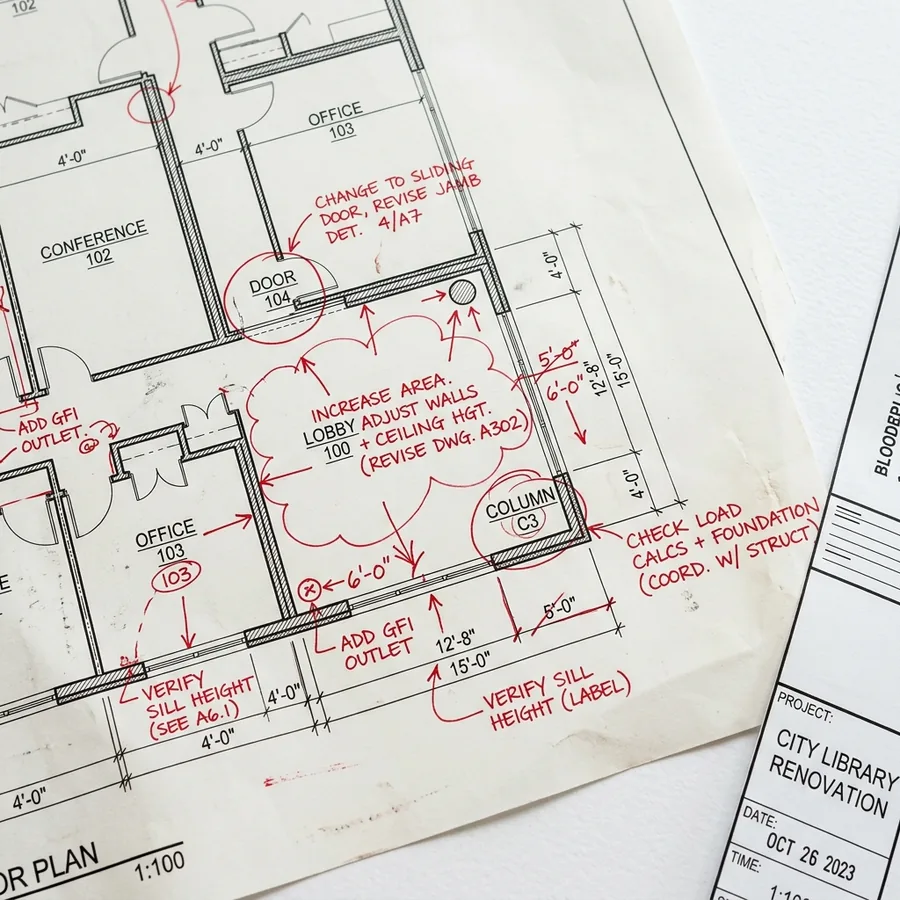 102
4'-0"
4'-0"
OFFICE
103
CHANGE TO SLIDING
DOOR, REVISE JAMB
DET. 4/A7
CONFERENCE
102
DOOR
104
4'-0"
5'-0"
6'-0"
12'-8"
15'-0"
4'-0"
INCREASE AREA.
LOBBY ADJUST WALLS
100 + CEILING HGT.
(REVISE DWG. A302)
ADD GFI
OUTLET.
COLUMN
C3
CHECK LOAD
CALCS + FOUNDATION
(COORD. W/ STRUCT)
OFFICE
103
103
6'-0"
ADD GFI
OUTLET
5'-0"
12'-8"
15'-0"
VERIFY
SILL HEIGHT
(SEE A6.1)
4'-0"
4'-0"
VERIFY SILL
HEIGHT (LABEL)
4'-0"
OR PLAN
1:100
PROJECT:
CITY LIBRARY
RENOVATION
DATE:
OCT 26 2023
TIME: